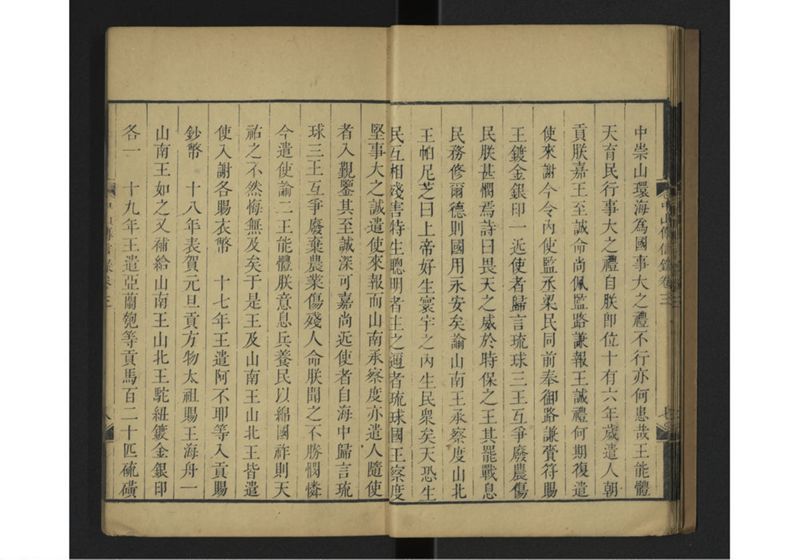 中山傳信錄卷三
七
中崇山環海為國事大之禮不行亦何患哉王能體
天育民行事大之禮自朕即位十有六年歲遣人朝
貢朕嘉王至誠命尚佩監路謙報王誠禮何期復遣
使來謝今令內使監丞梁民同前奉御路謙賫符賜
王鍍金銀印一近使者歸言琉球三王互爭廢農傷
民朕甚憫焉詩曰畏天之威於時保之王其罷戰息
民務修爾德則國用永安矣諭山南王承察度山北
王帕尼芝曰上帝好生寰宇之內生民衆矣天恐生
民互相殘害特生聰明者主之邇者琉球國王察度
堅事大之誠遣使來報而山南承察度亦遣人隨使
者入覲鑒其至誠深可嘉尚近使者自海中歸言琉
球三王互爭廢棄農業傷殘人命朕聞之不勝憫憐
今遣使諭二王能體朕意息兵養民以綿國祚則天
祐之不然悔無及矣于是王及山南王山北王皆遣
使入謝各賜衣幣　十七年王遣阿不耶等入貢賜
鈔幣　十八年表賀元旦貢方物太祖賜王海舟一
山南王如之又補給山南王山北王駝紐鍍金銀印
各一　十九年王遣亞蘭匏等貢馬百二十匹硫磺
中山傳信錄卷三
八